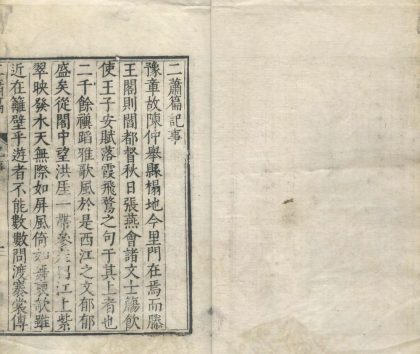 二蕭篇記事
豫章故陳仲舉縣榻地今里門在焉而滕
王閣則閻都督秋日張燕會諸文士觴飲
使王子安賦落霞飛鶩之句于其上者也
二千餘禩蹈雅歌風於是西江之文郁郁
盛矣從閣中望洪厓一帶參差江上紫
翠映發水天無際如屏風倚如歌雖
近在籬壁乎遊者不能數數問渡褰裳傳